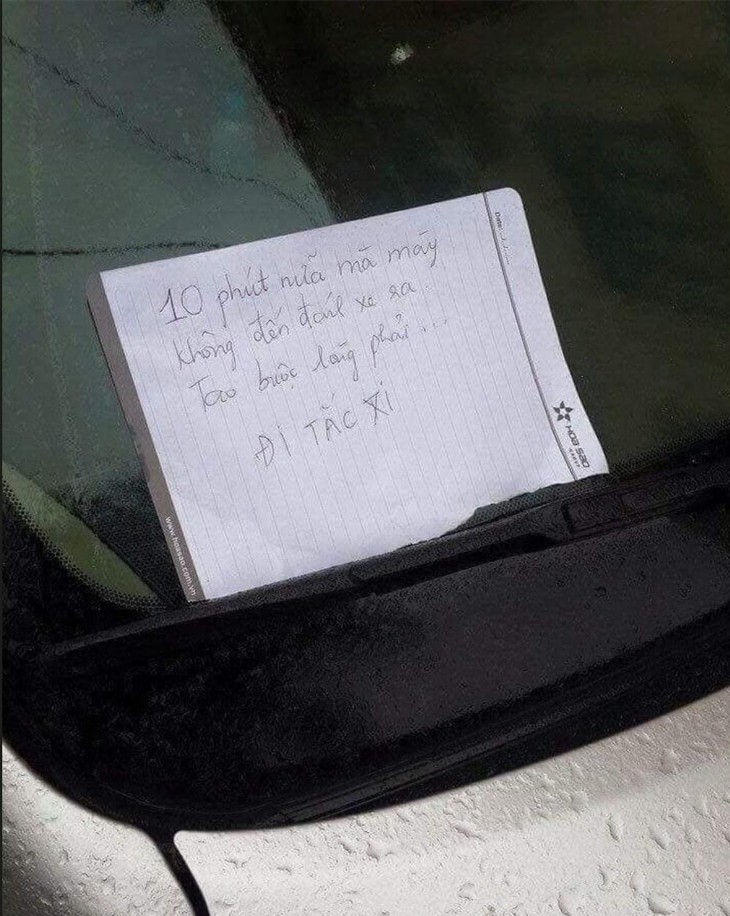 10 phút nữa mà mày
không đến đánh xe ra.
Tao buộc lòng phải...
ĐI TẮC XI
Date:
HOA SAO
GROUP
www.hoasao.com.vn